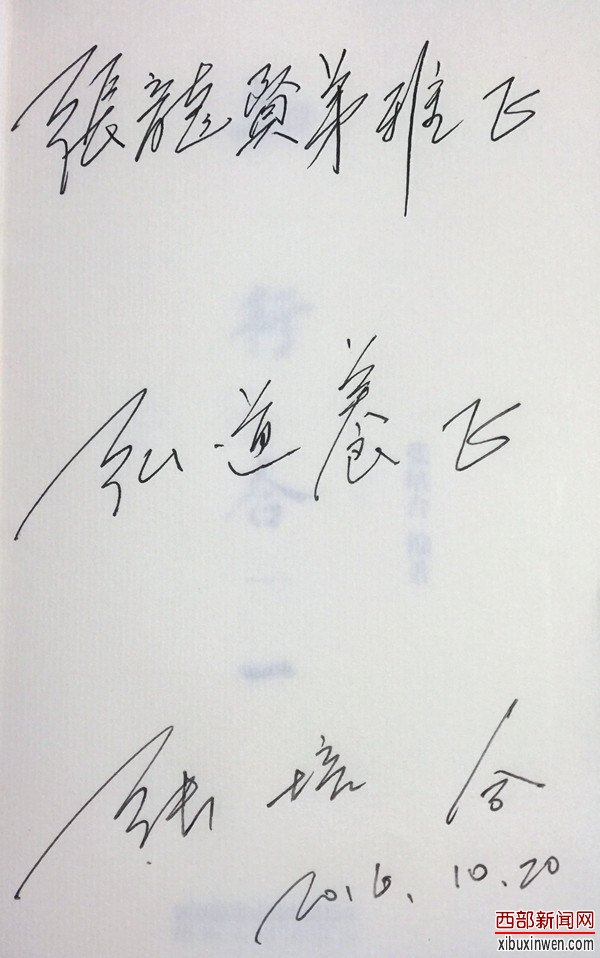 張龍賢弟雅正
弘道養正
张培合
2016.10.20
西部新闻网
xibuxinwen.com